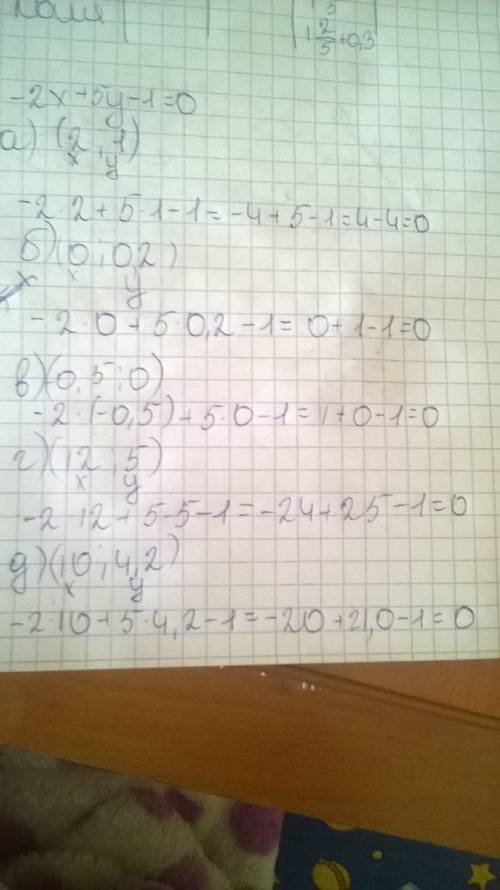 1 2/5 + 0,3
-2x+5y-1=0
а) (2, 1)
x y
-2·2+5·1-1=-4+5-1=4-4=0
б) (0; 0,2)
x x y
-2·0+5·0,2-1=0+1-1=0
в) (-0,5; 0)
-2·(-0,5)+5·0-1=1+0-1=0
г) (12; 5)
x y
-2·12+5·5-1=-24+25-1=0
д) (10; 4,2)
x y
-2·10+5·4,2-1=-20+21,0-1=0